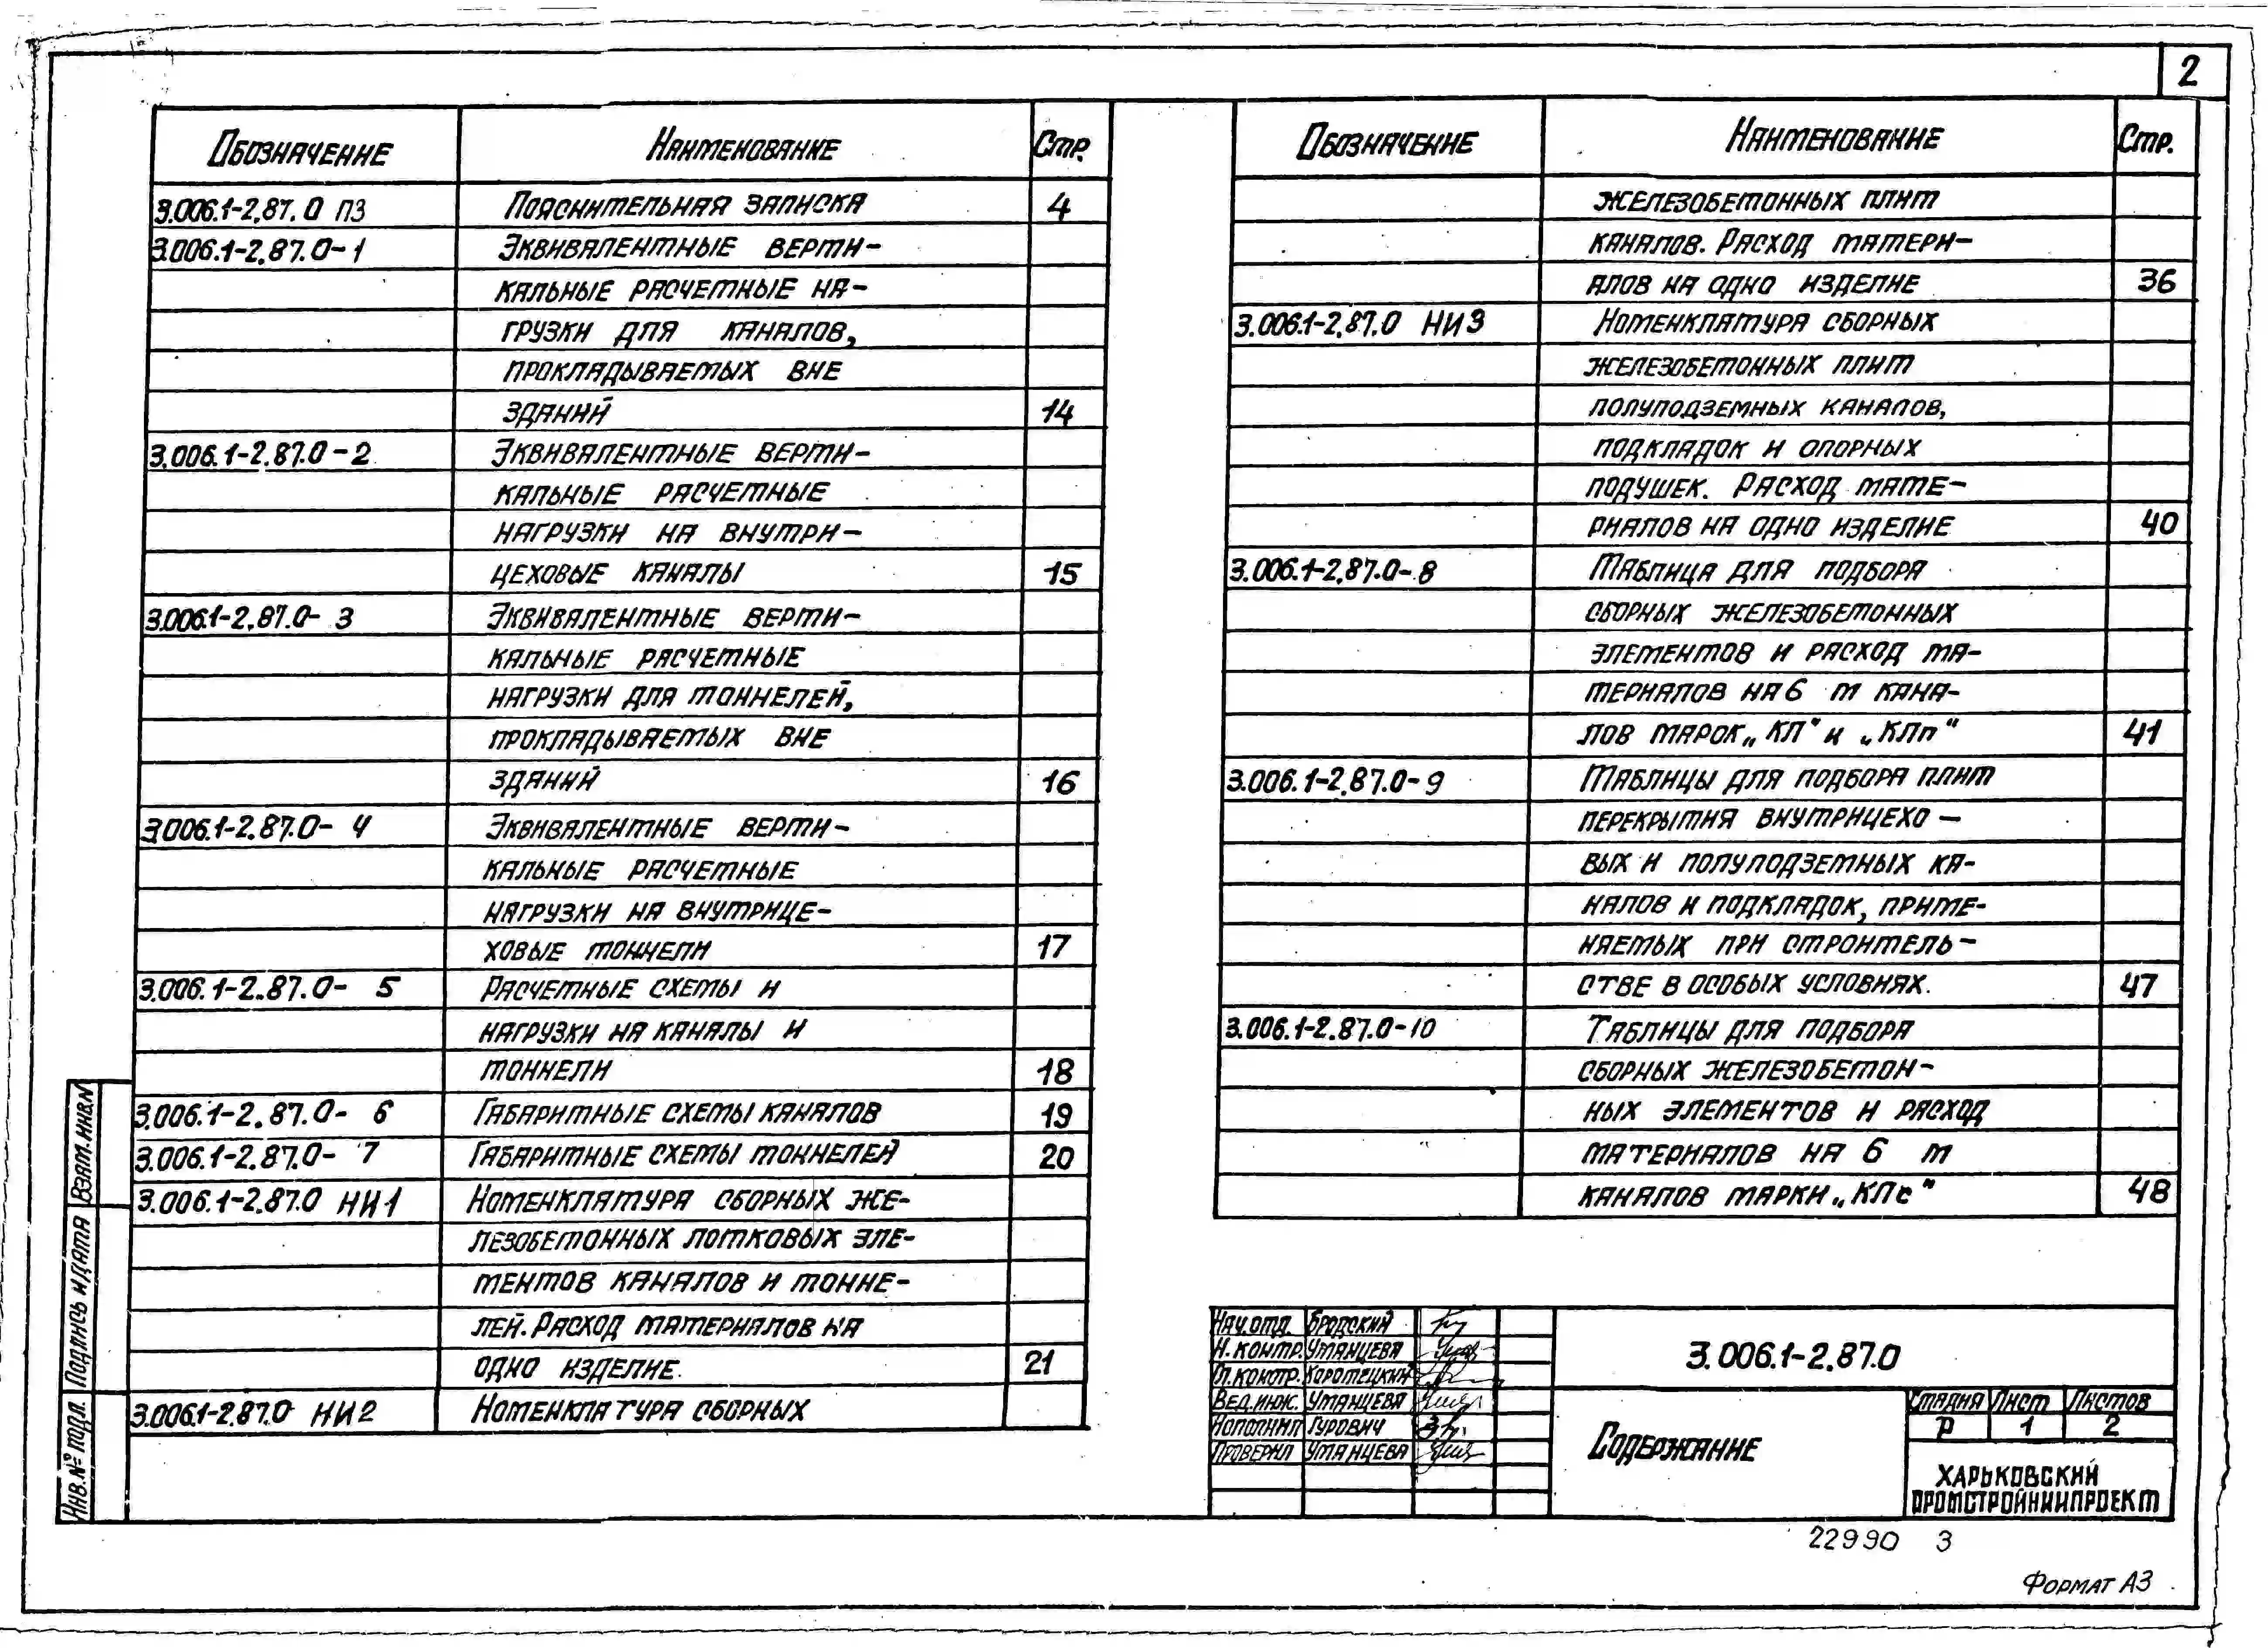 2
Обозначение Наименование Стр.
3.006.1-2.87.0 ПЗ Пояснительная записка 4
3.006.1-2.87.0-1 Эквивалентные верти-
кальные расчетные на-
грузки для каналов,
прокладываемых вне
зданий 14
3.006.1-2.87.0-2 Эквивалентные верти-
кальные расчетные
нагрузки на внутри-
цеховые каналы 15
3.006.1-2.87.0-3 Эквивалентные верти-
кальные расчетные
нагрузки для тоннелей,
прокладываемых вне
зданий 16
3.006.1-2.87.0-4 Эквивалентные верти-
кальные расчетные
нагрузки на внутрице-
ховые тоннели 17
3.006.1-2.87.0-5 Расчетные схемы и
нагрузки на каналы и
тоннели 18
3.006.1-2.87.0-6 Габаритные схемы каналов 19
3.006.1-2.87.0-7 Габаритные схемы тоннелей 20
3.006.1-2.87.0 НИ1 Номенклатура сборных же-
лезобетонных лотковых эле-
ментов каналов и тонне-
лей. Расход материалов на
одно изделие. 21
3.006.1-2.87.0 НИ2 Номенклатура сборных
Обозначение Наименование Стр.
железобетонных плит
каналов. Расход матери-
алов на одно изделие 36
3.006.1-2.87.0 НИ3 Номенклатура сборных
железобетонных плит
полуподземных каналов,
подкладок и опорных
подушек. Расход мате-
риалов на одно изделие 40
3.006.1-2.87.0-8 Таблица для подбора
сборных железобетонных
элементов и расход ма-
териалов на 6 м кана-
лов марок „КЛ“ и „КЛп“ 41
3.006.1-2.87.0-9 Таблицы для подбора плит
перекрытия внутрицехо-
вых и полуподземных ка-
налов и подкладок, приме-
няемых при строитель-
стве в особых условиях. 47
3.006.1-2.87.0-10 Таблицы для подбора
сборных железобетон-
ных элементов и расход
материалов на 6 м
каналов марки „КЛс“ 48
Взам. инв. №
Подпись и дата
Инв. № подл.
Нач. отд. Бродский
Н. контр. Уманцева
Гл. констр. Коротецкий
Вед. инж. Уманцева
Исполнил Гурович
Проверил Уманцева
3.006.1-2.87.0
Содержание
Стадия Лист Листов
Р 1 2
Харьковский
Промстройниипроект
22990 3
Формат А3